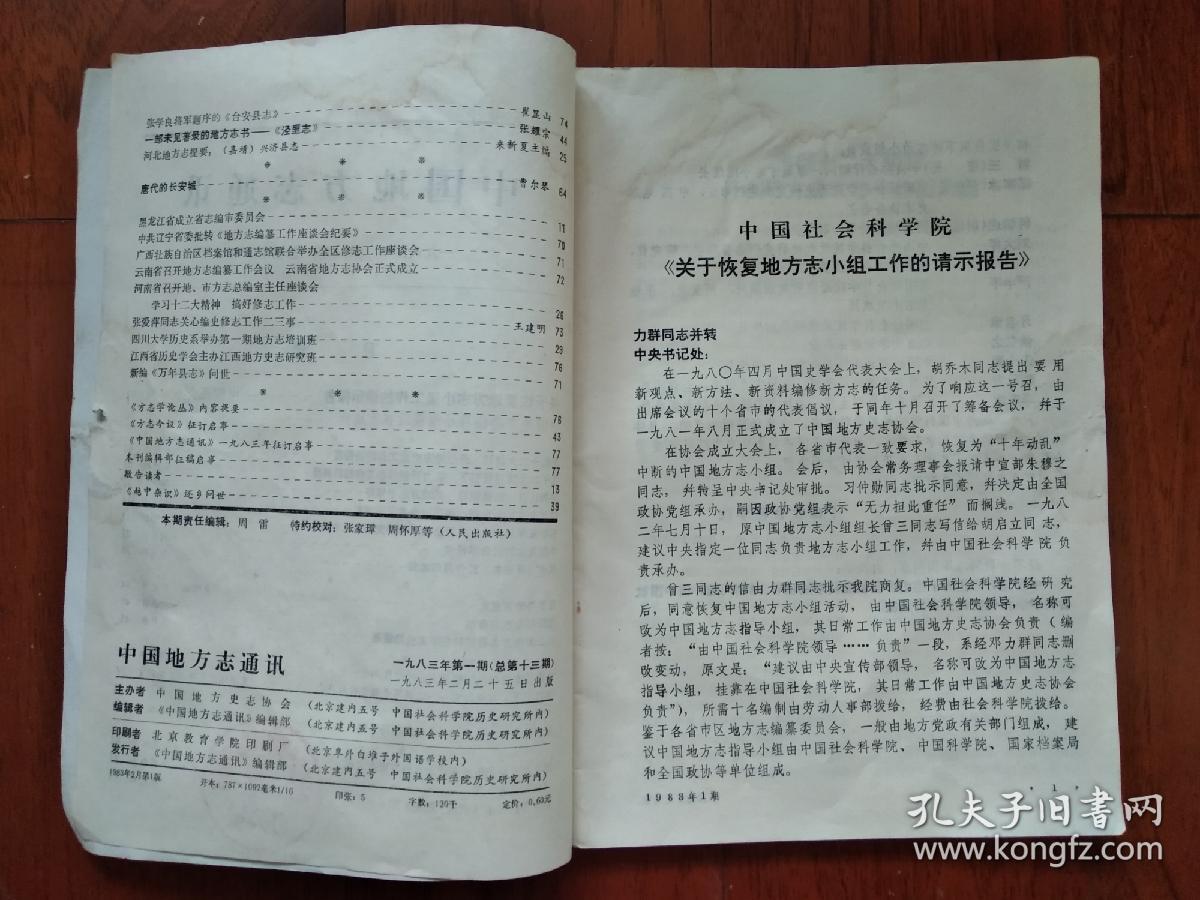 张学良将军题序的《台安县志》 崔显山 74
一部未见著录的地方志书——《泾里志》 张耀宗 44
河北地方志提要：（嘉靖）兴济县志 来新夏主编 25
* * *
唐代的长安城 曹尔琴 64
* * *
黑龙江省成立省志编审委员会 11
中共辽宁省委批转《地方志编纂工作座谈会纪要》 70
广西壮族自治区档案馆和通志馆联合举办全区修志工作座谈会 71
云南省召开地方志编纂工作会议 云南省地方志协会正式成立 72
河南省召开地、市方志总编室主任座谈会
学习十二大精神 搞好修志工作 26
张爱萍同志关心编史修志工作二三事 王建明 73
四川大学历史系举办第一期地方志培训班 29
江西省历史学会主办江西地方史志研究班 76
新编《万年县志》问世 71
* * *
《方志学论丛》内容提要 76
《方志今议》征订启事 43
《中国地方志通讯》一九八三年征订启事 77
本刊编辑部征稿启事 77
敬告读者 13
《越中杂识》还乡问世 39
本期责任编辑：周 雷 特约校对：张家璋 周怀厚等（人民出版社）
中国地方志通讯 一九八三年第一期（总第十三期）
一九八三年二月二十五日出版
主办者 中国地方史志协会 （北京建内五号 中国社会科学院历史研究所内）
编辑者 《中国地方志通讯》编辑部 （北京建内五号 中国社会科学院历史研究所内）
印刷者 北京教育学院印刷厂 （北京阜外白堆子外国语学校内）
发行者 《中国地方志通讯》编辑部 （北京建内五号 中国社会科学院历史研究所内）
1983年2月第1版 开本：787×1092毫米1/16 印张：5 字数：120千 定价：0.60元
中国社会科学院
《关于恢复地方志小组工作的请示报告》
力群同志并转
中央书记处：
在一九八〇年四月中国史学会代表大会上，胡乔木同志提出要用
新观点、新方法、新资料编修新方志的任务。为了响应这一号召，由
出席会议的十个省市的代表倡议，于同年十月召开了筹备会议，并于
一九八一年八月正式成立了中国地方史志协会。
在协会成立大会上，各省市代表一致要求，恢复为“十年动乱”
中断的中国地方志小组。会后，由协会常务理事会报请中宣部朱穆之
同志，并转呈中央书记处审批。习仲勋同志批示同意，并决定由全国
政协党组承办，嗣因政协党组表示“无力担此重任”而搁浅。一九八
二年七月十日，原中国地方志小组组长曾三同志写信给胡启立同志，
建议中央指定一位同志负责地方志小组工作，并由中国社会科学院负
责承办。
曾三同志的信由力群同志批示我院商复。中国社会科学院经研究
后，同意恢复中国地方志小组活动，由中国社会科学院领导，名称可
改为中国地方志指导小组，其日常工作由中国地方史志协会负责（编
者按：“由中国社会科学院领导……负责”一段，系经邓力群同志删
改变动，原文是：“建议由中央宣传部领导，名称可改为中国地方志
指导小组，挂靠在中国社会科学院，其日常工作由中国地方史志协会
负责”），所需十名编制由劳动人事部拨给，经费由社会科学院拨给。
鉴于各省市区地方志编纂委员会，一般由地方党政有关部门组成，建
议中国地方志指导小组由中国社会科学院、中国科学院、国家档案局
和全国政协等单位组成。
1983年1期 ·1·
孔夫子旧书网
www.kongfz.com